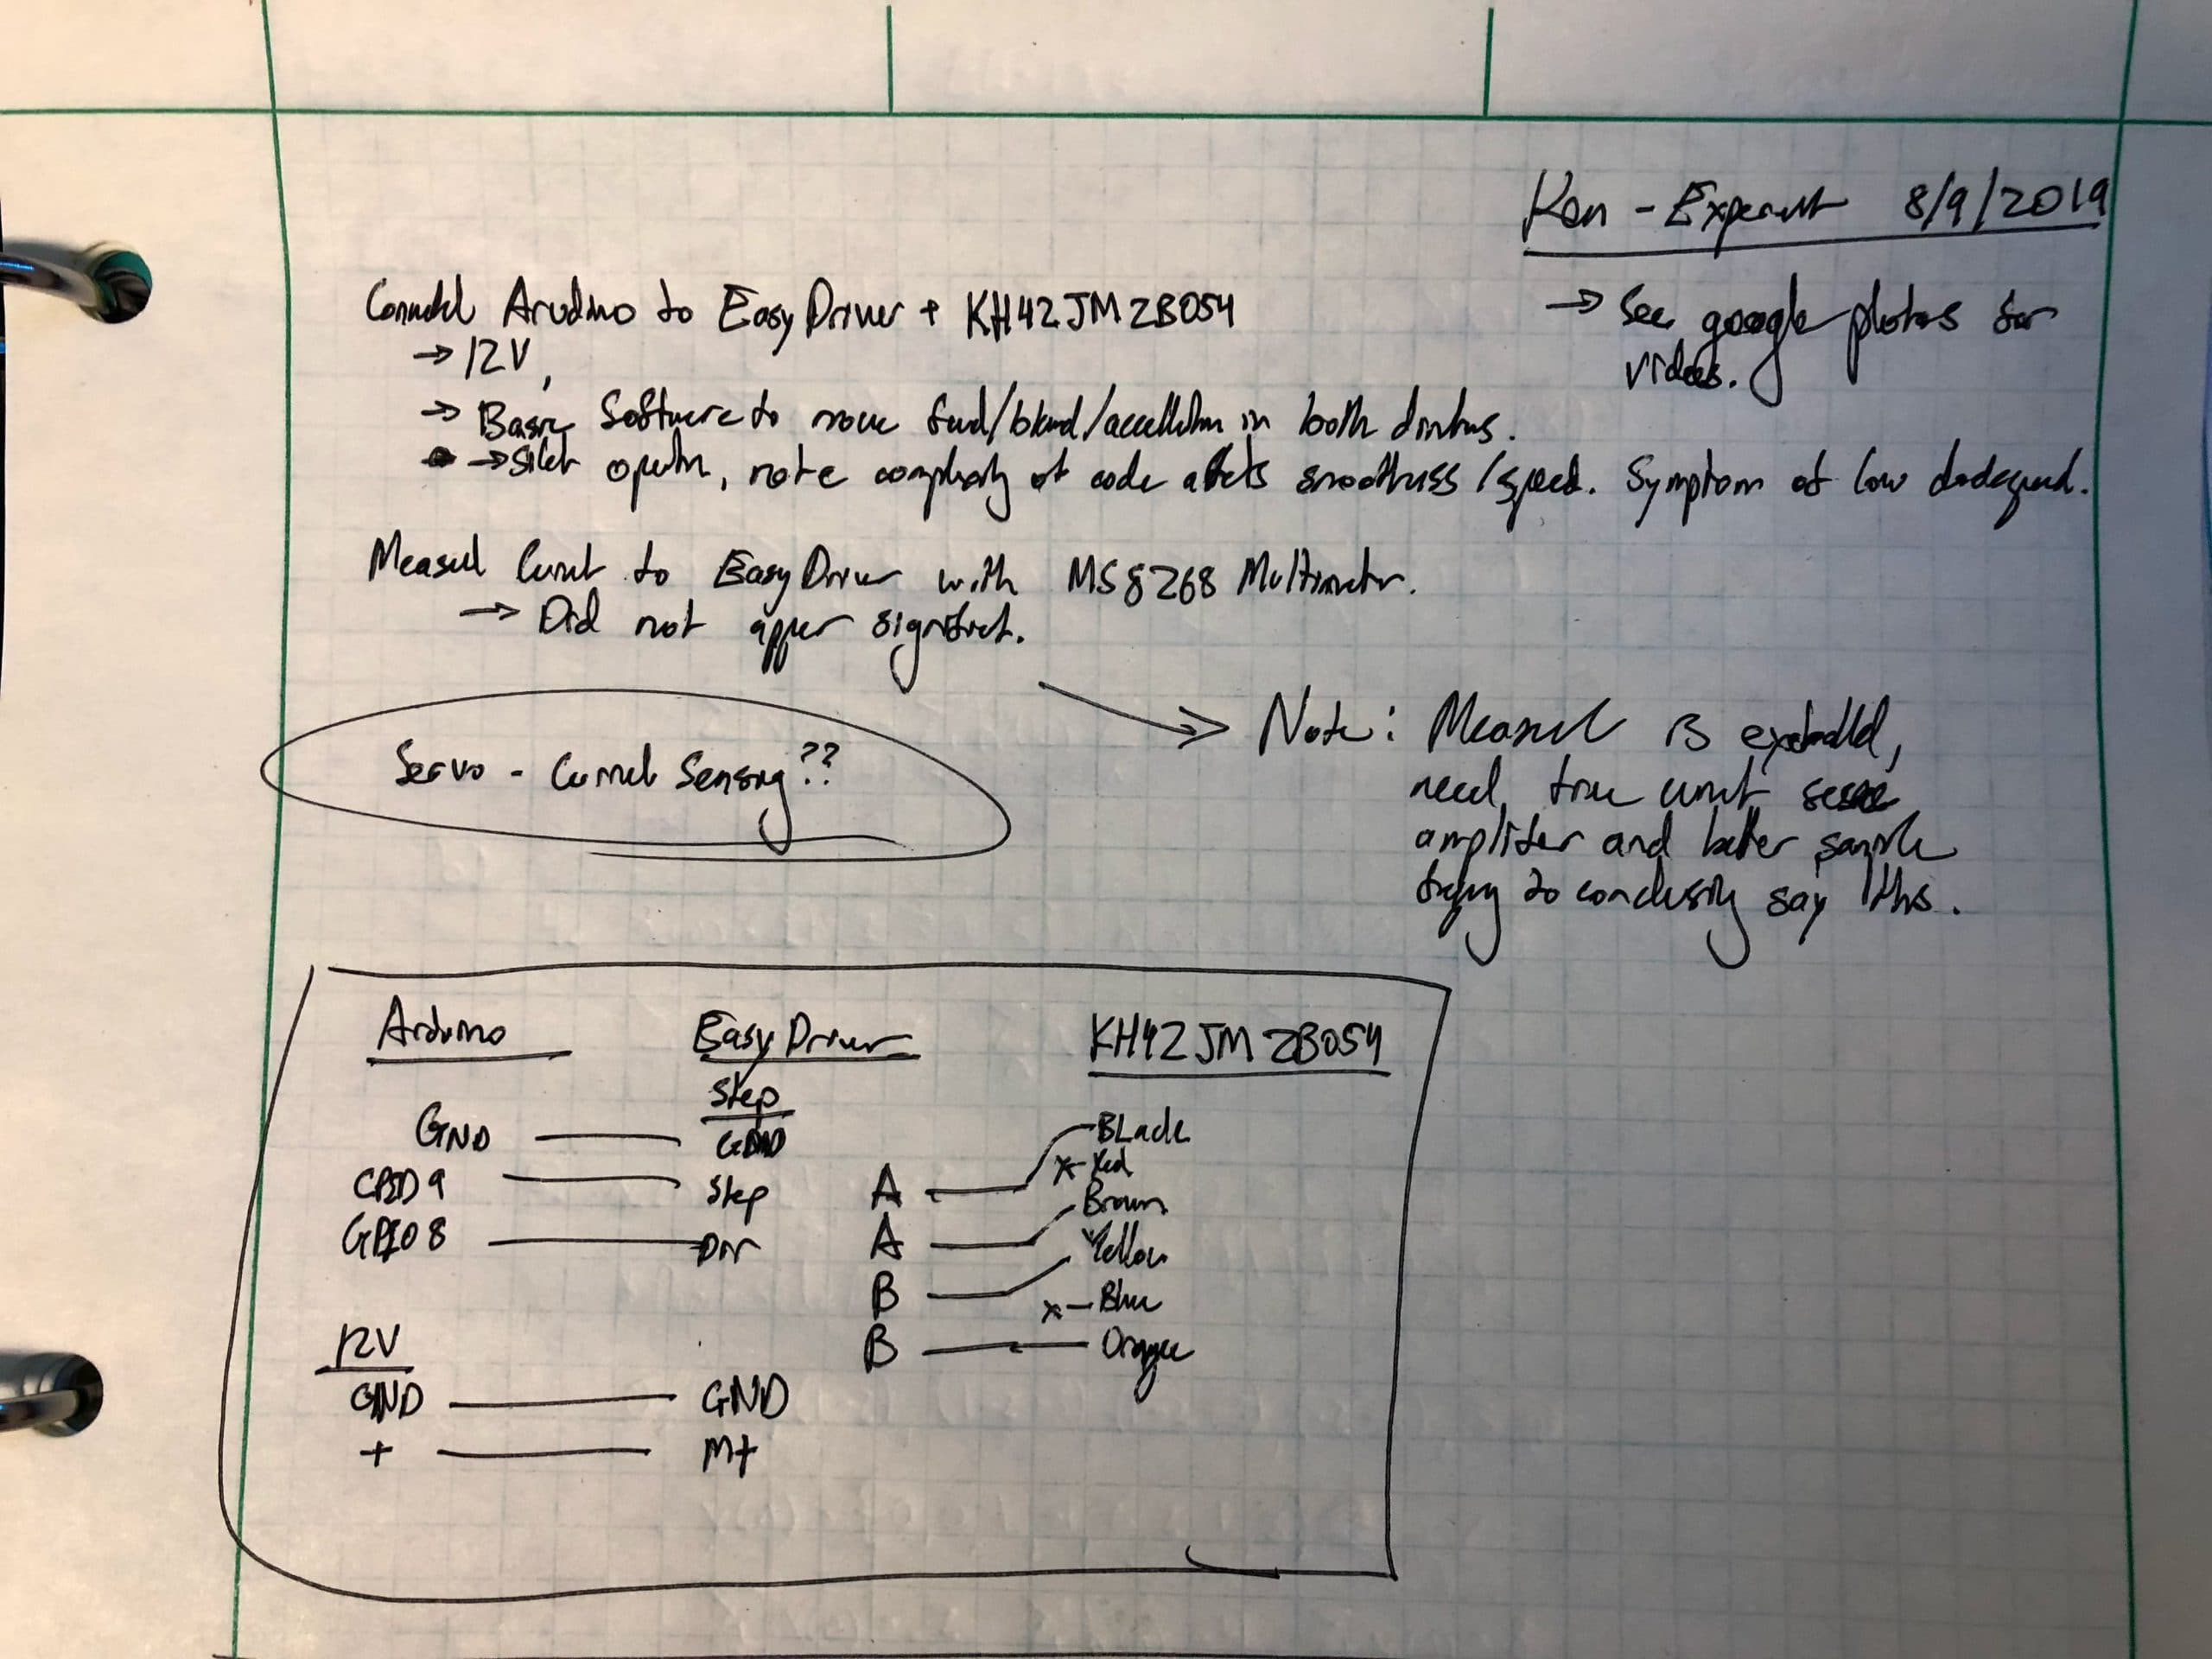 Ken - Experiment 8/9/2019
→ See google photos for
videos.
Connected Arduino to EasyDriver + KH42JM2B054
→ 12V,
→ Basic Software to move fwd/bkwd/ in both directions.
→ Silent operation, note complexity of code affects smoothness/speed. Symptom of low
Measured Current to EasyDriver with MS8268 Multimeter.
→ Did not appear significant.
Servo - Current Sensing??
→ Note: Measured is
need true current sense
amplifier and better sample
to conclusively say this.
Arduino EasyDriver KH42JM2B054
Step
GND — GND
GPIO 9 — Step
GPIO 8 — Dir
A — Black
x — Red
A — Brown
B — Yellow
x — Blue
B — Orange
12V
GND — GND
+ — M+